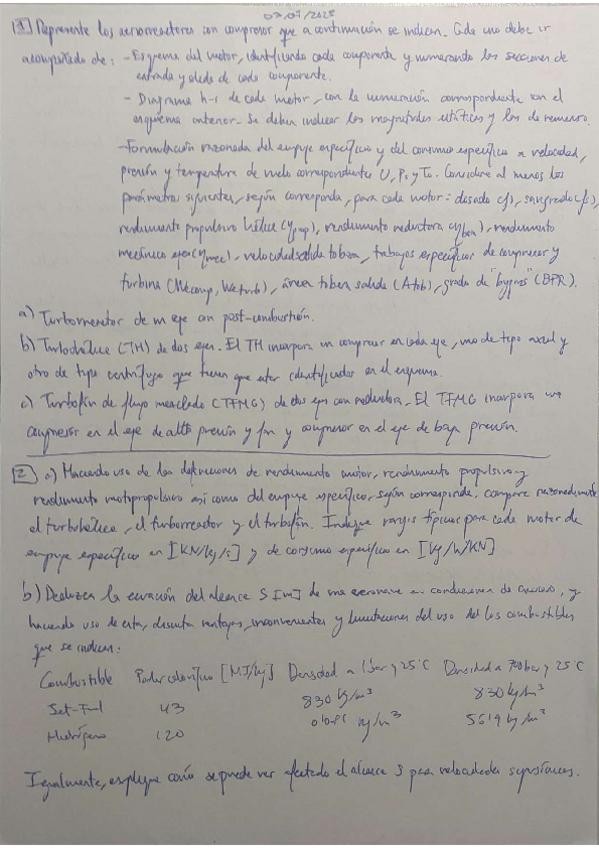 07.07.2025
1 Represente los aerorreactores con compresor que a continuación se indican. Cada uno debe ir
acompañado de: - Esquema del motor, identificando cada componente y numerando las secciones de
entrada y salida de cada componente.
- Diagrama h-s de cada motor, con la numeración correspondiente con el
esquema anterior. Se deben indicar las magnitudes estáticas y las de remanso.
- Formulación razonada del empuje específico y del consumo específico a velocidad,
presión y temperatura de vuelo correspondientes U, P0 y T0. Considere al menos los
parámetros siguientes, según corresponda, para cada motor: dosado (f), sangrado
rendimiento propulsivo hélice (ηprop), rendimiento reductora, rendimiento
mecánico ejes (ηmec), velocidad salida tobera, trabajos específicos de compresor y
turbina (Wecomp, Weturb), área tobera salida (Atob), grado de "bypass" (BPR).
a) Turborreactor de un eje con post-combustión.
b) Turbohélice (TH) de dos ejes. El TH incorpora un compresor en cada eje, uno de tipo axial y
otro de tipo centrífugo que tienen que estar identificados en el esquema.
c) Turbofán de flujo mezclado (TFMG) de dos ejes con reductora. El TFMG incorpora un
compresor en el eje de alta presión y fan y compresor en el eje de baja presión.
2 a) Haciendo uso de las definiciones de rendimiento motor, rendimiento propulsivo y
rendimiento motopropulsivo así como del empuje específico, según corresponde, compare razonadamente
el turbohélice, el turborreactor y el turbofán. Incluya rangos típicos para cada motor de
empuje específico en [KN/kg/s] y de consumo específico en [kg/h/KN]
b) Deduzca la ecuación del alcance S [m] de una aeronave en condiciones de crucero, y
haciendo uso de esta, discuta ventajas, inconvenientes y limitaciones del uso de los combustibles
que se indican:
Combustible Poder calorífico [MJ/kg] Densidad a 1 bar y 25°C Densidad a 700 bar y 25°C
Jet-Fuel 43 830 kg/m³ 830 kg/m³
Hidrógeno 120 kg/m³ kg/m³
Igualmente, explique cómo se puede ver afectado el alcance S para velocidades supersónicas.